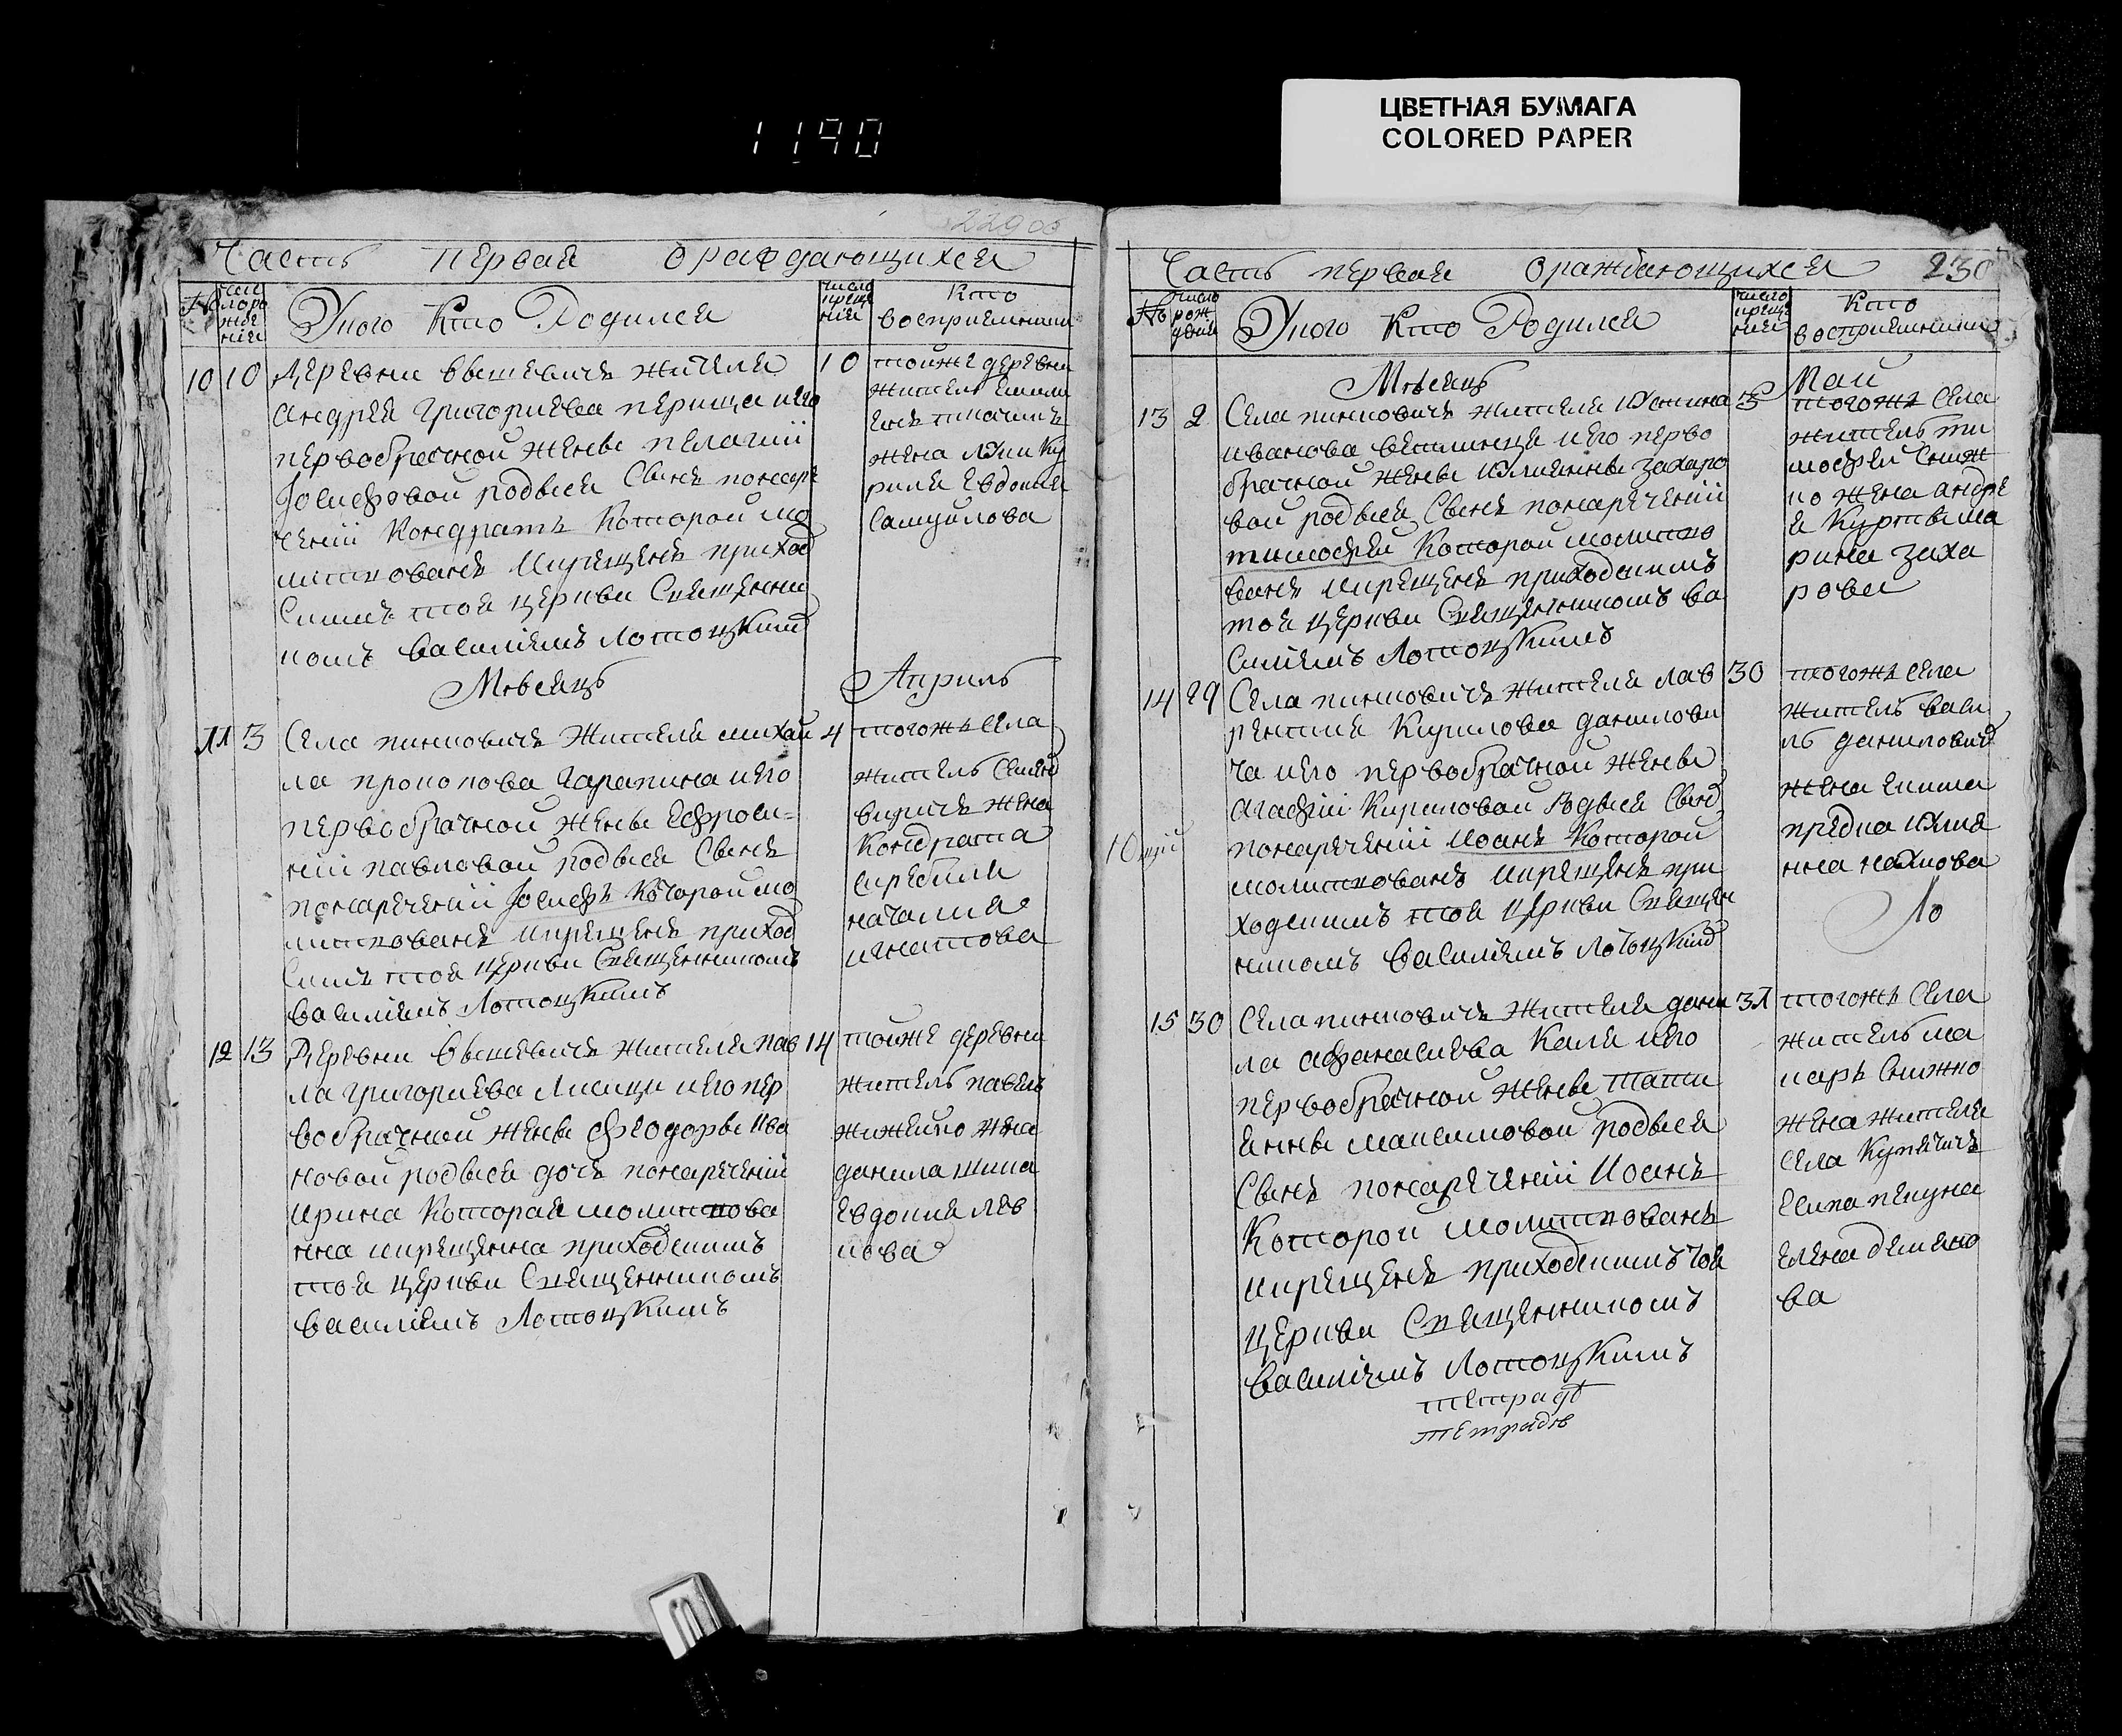 1190
ЦВЕТНАЯ БУМАГА
COLORED PAPER
229 об
Часть первая о раждающихся
№
число рождения
У кого кто Родился
число крещения
Кто восприемники
10 10 Деревни вышевичъ жителя
Андрея григориева перища и его
первобрачной жены пелагии
Јосифовой родился Сынъ понаре
чении Кондратъ Которой мо
литвованъ икрещенъ приход
скимъ тоя церкви Священни
комъ василиемъ Лотоцкимъ
10 тойже деревни
житель
жена
рилы Евдокия
Самуйлова
Мѣсяцъ Априль
11 3 Села пинковичъ Жителя михай
ла прокопова Гарапина и его
первобрачной жены Ефроси=
нии павловой родился Сынъ
понаречении Јосифъ Которой мо
литвованъ икрещенъ приход
скимъ тоя церкви Священникомъ
василиемъ Лотоцкимъ
4 тогожъ села
житель Семен
жена
Кондрата
наталия
игнатова
12 13 Деревни вышевичъ жителя пав
ла григориева Лисици и его пер
вобрачной жены Феодоры Ива
новой родился дочъ понаречении
Ирина Которая молитвова
нна икрещенна приходскимъ
тоя церкви Священникомъ
василиемъ Лотоцкимъ
14 тойже деревни
житель павелъ
жена
данила
Евдокия Лев
кова
Часть первая о раждающихся 230
№
число рождения
У кого кто Родился
число крещения
Кто восприемники
Мѣсяцъ Май
13 2 Села пинковичъ жителя
иванова и его перво
брачной жены Захаро
вой родился Сынъ понаречении
тимофей Которой молитво
ванъ икрещенъ приходскимъ
тоя церкви Священникомъ ва
силиемъ Лотоцкимъ
3 тогожъ Села
житель ти
мофей Снеж
ко жена андре
я
рина заха
рова
14 29 Села пинковичъ жителя лав
рентия Кирилова данилови
ча и его первобрачной жены
агафии Кириловой Родился Сынъ
понаречении Иоанъ Которой
молитвованъ икрещенъ при
ходскимъ тоя церкви Священ
никомъ василиемъ Лотоцкимъ
30 тогожъ села
житель васи
ль данилович
жена
15 30 Села пинковичъ Жителя дани
ла афанасиева Каля и его
первобрачной жены Тати
янны максимовой родился
Сынъ понаречении Иоанъ
Которой молитвованъ
икрещенъ приходскимъ тоя
церкви Священникомъ
василиемъ Лотоцкимъ
31 тогожъ Села
житель ма
каръ Снижко
жена жителя
села
Елена демяно
ва
тетрадь
тетрадь